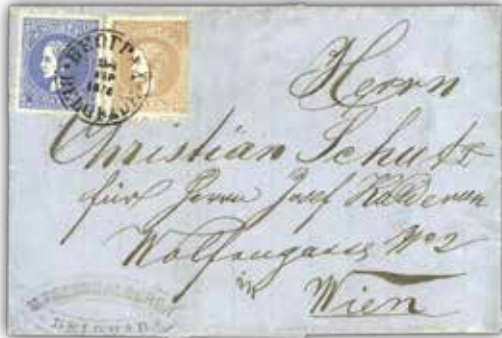 БЕОГРАД
187
BELGRADE
Herrn
Christian Schutz
für Herrn Josef Kalderon
Wolfengasse No 2
in Wien
BELGRAD